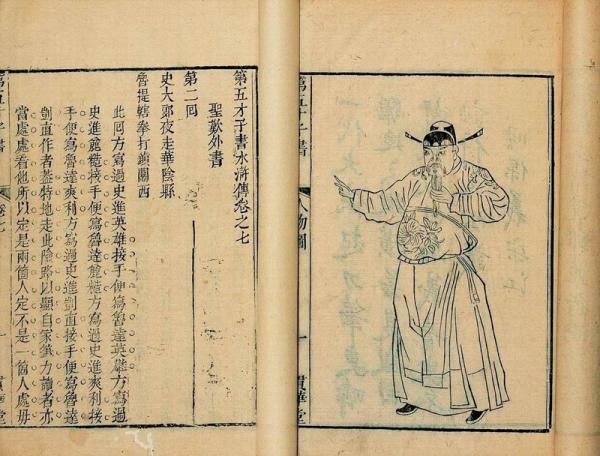 第五才子書 人物圖 一 貫華堂
第五才子書水滸傳卷之七
聖歎外書
第二回
史大郎夜走華陰縣
魯提轄拳打鎮關西
此回方寫過史進英雄接手便寫魯達英雄方寫過
史進麄糙接手便寫魯達麄糙方寫過史進爽利接
手便寫魯達爽利方寫過史進剴直接手便寫魯達
剴直作者蓋特地走此險路以顯自家筆力讀者亦
當處處看他所以定是兩箇人定不是一箇人處毋
第五才子書 卷七 一 貫華堂